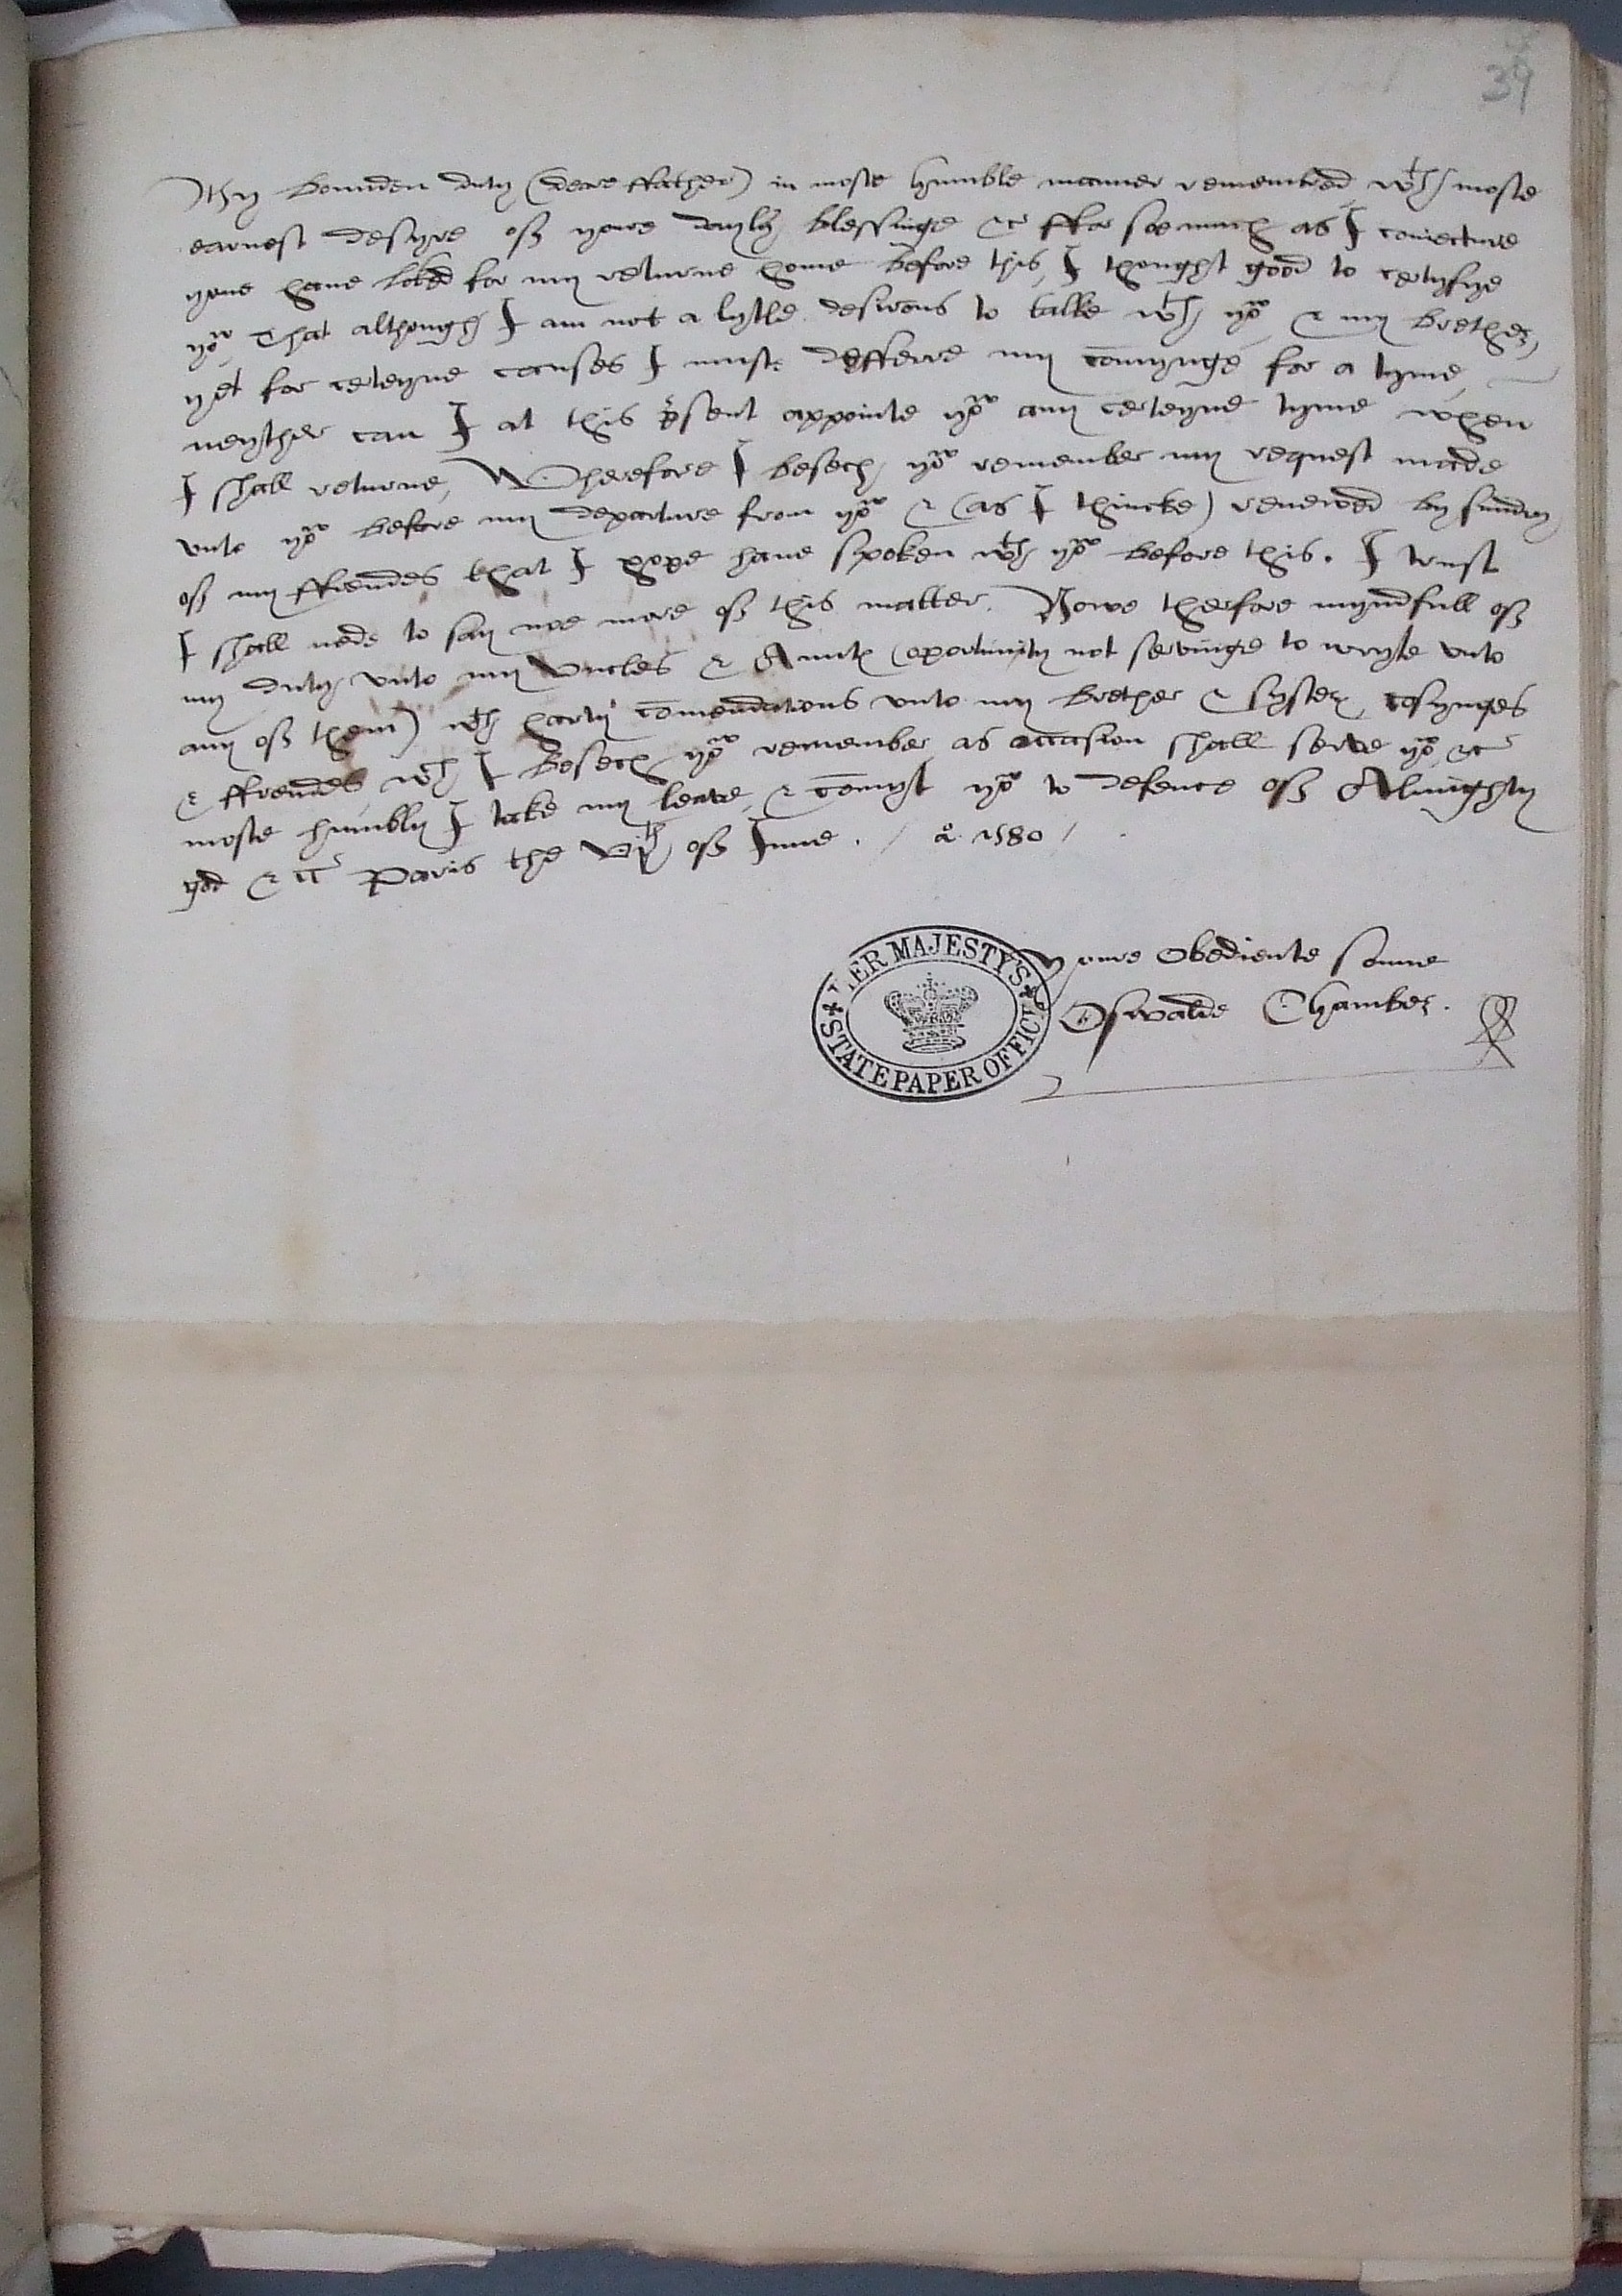 39
My bounden duty (deare ffather) in moste humble manner remembred, wth moste
earnest desyre off youre dayly blessinge &c ffor soe much as I coniecture
youe haue loked for my returne home before this, I thought good to certyfye
you That although I am not a lytle desirous to talke wth you & my brether,
yet for certeyne causes I must defferre my comynge for a tyme,
neyther can I at this psent appointe you any certeyne tyme when
I shall returne, Wherefore I besech you remember my request made
vnto you before my departure from you & (as I thincke) renewed by sundry
off my ffrendes that I hope haue spoken wth you before this. I trust
I shall nede to say noe more off this matter. Nowe therfore myndfull off
my duty vnto my Vncles & Aunts (oportunity not servinge to wryte vnto
any off them) wth harty comendations vnto my brether & systers, cosynges
& ffrendes, wch I besech you remember as occasion shall serve you &c
moste humbly I take my leave & comyt you to defence off Almighty
god &c Paris the vijth off June. / ao 1580 /
Youre obediente sonne
Oswalde Chamber.
HER MAJESTY'S
STATE PAPER OFFICE